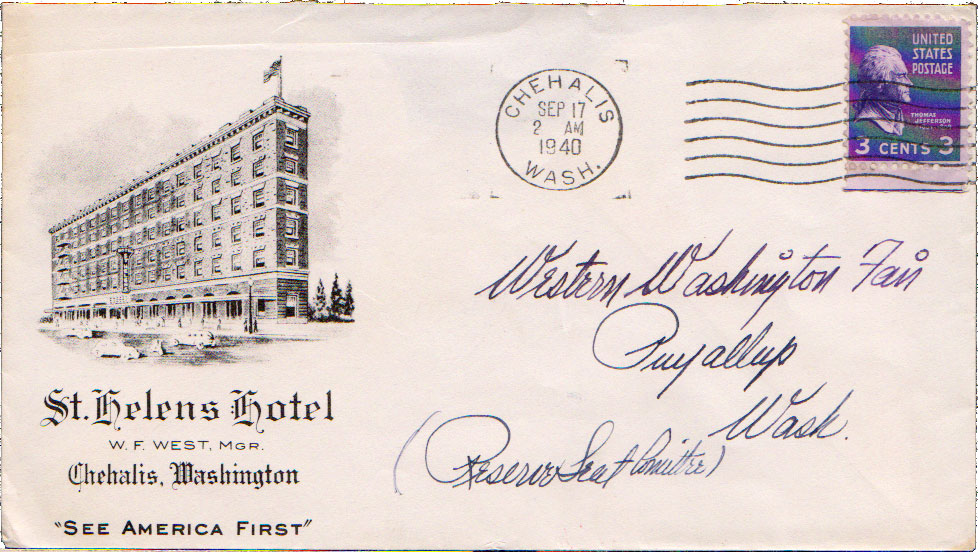 St. Helens Hotel
W. F. WEST, MGR.
Chehalis, Washington
"SEE AMERICA FIRST"
CHEHALIS
SEP 17
2 AM
1940
WASH.
UNITED
STATES
POSTAGE
THOMAS
JEFFERSON
3 CENTS 3
Western Washington Fair
Puyallup
Wash.
(Reserve Seat Comittee)